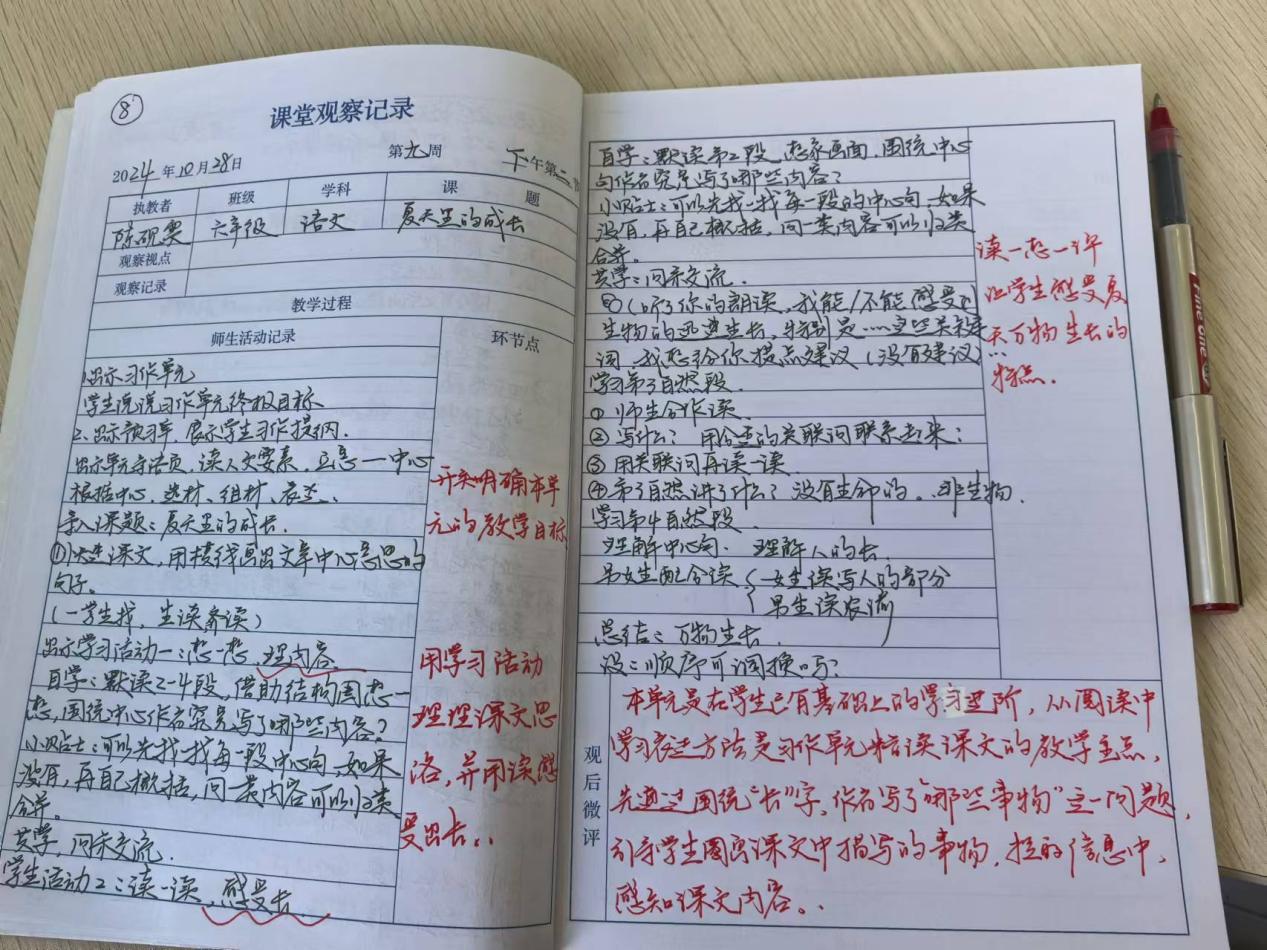 8
课堂观察记录
2024年10月28日
第九周
下午第二节
执教者
班级
学科
课 题
陈砚雯
六年级
语文
夏天里的成长
观察视点
观察记录
教学过程
师生活动记录
环节点
1.出示习作单元
学生说说习作单元终极目标
2.出示预习单,展示学生习作提纲.
出示单元导语页,读人文要素,立意一中心
根据中心,选材、组材、表达.
导入课题:夏天里的成长.
①快速课文,用横线画出文章中心意思的
句子。
(一学生找,生读齐读)
出示学习活动一:想一想,理内容
自学:默读2-4段,借助结构图想一
想,围绕中心作者究竟写了哪些内容?
小贴士:可以先找一找每一段中心句,如果
没有,再自己概括,同一类内容可以归类
合并。
共学,同桌交流.
学生活动2:读一读,感受长
开头明确本单
元的教学目标
用学习活动
理理课文思
洛,并用读感
受出长..
自学:默读第2段,想象画面,围绕中心
句作者究竟写了哪些内容?
小贴士:可以先找一找每一段的中心句,如果
没有,再自己概括,同一类内容可以归类
合并。
共学:同桌交流.
(听了你的朗读,我能/不能感受到
生物的迅速生长,特别是……这些关键
词,我想给你提点建议(没有建议)
学习第3自然段.
①师生合作读.
②写什么?用合适的关联词联系起来:
③用关联词再读一读.
④第3自然讲了什么?没有生命的。非生物.
学习第4自然段.
理解中心句、理解人的长.
男女生配合读 女生读写人的部分
男生读农谚
总结:万物生长.
没:顺序可调换吗?
读一想一评
让学生感受夏
天万物生长的
特点.
观后微评
本单元是在学生已有基础上的学习进阶,从阅读中
学习表达方法是习作单元精读课文的教学重点,
先通过围绕“长”字,作者写了“哪些事物”这一问题,
引导学生圈画课文中描写的事物,提取信息中,
感知课文内容。.
Fine one